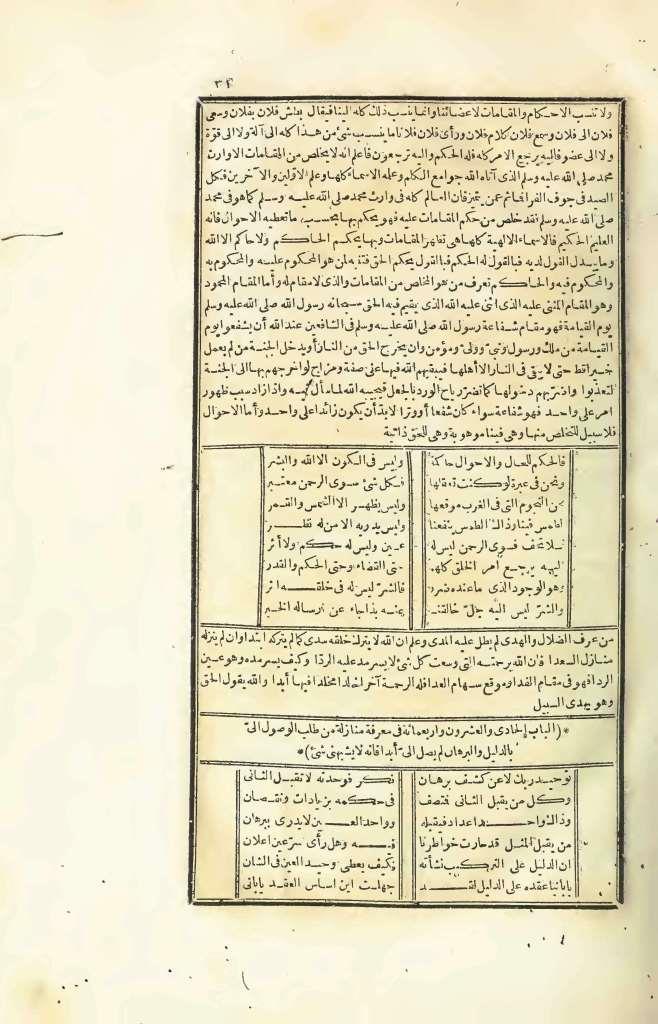 ٣٤
ولا تنسب الاحكام والمقامات لاعضائنا وانما ينسب ذلك كله الينا فيقال بطش فلان بفلان وسعى
فلان الى فلان وسمع فلان كلام فلان ورأى فلان فلانا ما ينسب شئ من هذا كله الى آلة ولا الى قوة
ولا الى عضو فاليه يرجع الامر كله فله الحكم واليه ترجعون فاعلم انه لا يخلص من المقامات الا وارث
محمد صلى الله عليه وسلم الذى آتاه الله جوامع الكلم وعلمه الاسماء كلها وعلم الاولين والآخرين فكل
الصيد فى جوف الفرا فما ثم عمن يتميز فان العالم كله فى وارث محمد صلى الله عليه وسلم كما هو فى محمد
صلى الله عليه وسلم فقد خلص من حكم المقامات عليه فهو يحكم بها بحسب ما تعطيه الاحوال فانه
العليم الحكيم فالاسماء الالهية كلها هى تظهر المقامات وبها يحكم الحاكم ولا حاكم الا الله
وما يبدل القول لديه فما القول له الحكم فبالقول يحكم الحق فتنبه لمن هو المحكوم عليه والمحكوم به
والمحكوم فيه والحاكم تعرف من هو المخلص من المقامات والذى لا مقام له وأما المقام المحمود
وهو المقام المثنى عليه الذى اثنى عليه الله الذى يقيم فيه الحق سبحانه رسول الله صلى الله عليه وسلم
يوم القيامة فهو مقام شفاعة رسول الله صلى الله عليه وسلم فى الشافعين عند الله أن يشفعوا يوم
القيامة من ملك ورسول ونبىّ وولىّ ومؤمن وان يخرج الحق من النار أو يدخل الجنة من لم يعمل
خيرا قط حتى لا يبقى فى النار الا اهلها فيبقيهم الله فيها على صفة ومزاج لو اخرجهم بها الى الجنة
لتعذبوا واضرّ بهم دخولها كما تضرّ رياح الورد بالجعل فيجيبه الله لما سأل فيه واذا زاد سبب ظهور
امر على واحد فهو شفاعة سواء كان شفعا أو وترا لا بدّ أن يكون زائدا على واحد وأما الاحوال
فلا سبيل للتخلص منها وهى فينا موهوبة وهى للحق ذاتية
فالحكم للحال والاحوال حاكمة وليس فى الكون الا الله والبشر
ونحن فى عبرة لو كنت تعقلها فكل شئ سوى الرحمن معتبر
نحن النجوم التى فى الغرب موقعها وليس يظهر الا الشمس والقمر
الطمس فينا وذاك الطمس ينفعنا وليس يدريه الا من له نظر
فلا تخف فسوى الرحمن ليس له عين وليس له حكم ولا أثر
اليه يرجع أمر الخلق كلهم حتى القضاء وحتى الحكم والقدر
وهو الوجود الذى ما عنده ضرر فالشرّ ليس له فى خلقه اثر
والشرّ ليس اليه جلّ خالقنا عنه بذا جاء عن ارساله الخبر
من عرف الضلال والهدى لم يطل عليه المدى وعلم ان الله لا يترك خلقه سدى كما لم يتركه ابتداء وان لم ينزله
منازل السعدا فان الله برحمته التى وسعت كل شئ لا يسرمد عليه الردا وكيف يسرمده وهو عين
الردا فهو فى مقام الفدا وموقع سهام العدا فله الرحمة آخرا خالدا مخلدا فيها أبدا والله يقول الحق
وهو يهدى السبيل
*(الباب الحادى والعشرون واربعمائة فى معرفة منازلة من طلب الوصول الىّ
بالدليل والبرهان لم يصل الىّ أبدا فانه لا يشبهنى شئ)*
توحيد ربك لا عن كشف برهان فكر فوحدته لا تقبل الثانى
وكل من يقبل الثانى فتصف فى حكمه بزيادات ونقصان
وذاك واحد اعداد فيقبله وواحد العين لا يدرى ببرهان
من يقبل المثل قد حارت خواطرنا فيه وهل رأى سرّ عين اعلان
ان الدليل على التركيب نشأته فكيف يعطى وحيد العين فى الشان
يا بانيا عقده على الدليل لقد جهلت اين اساس العقد يا بانى